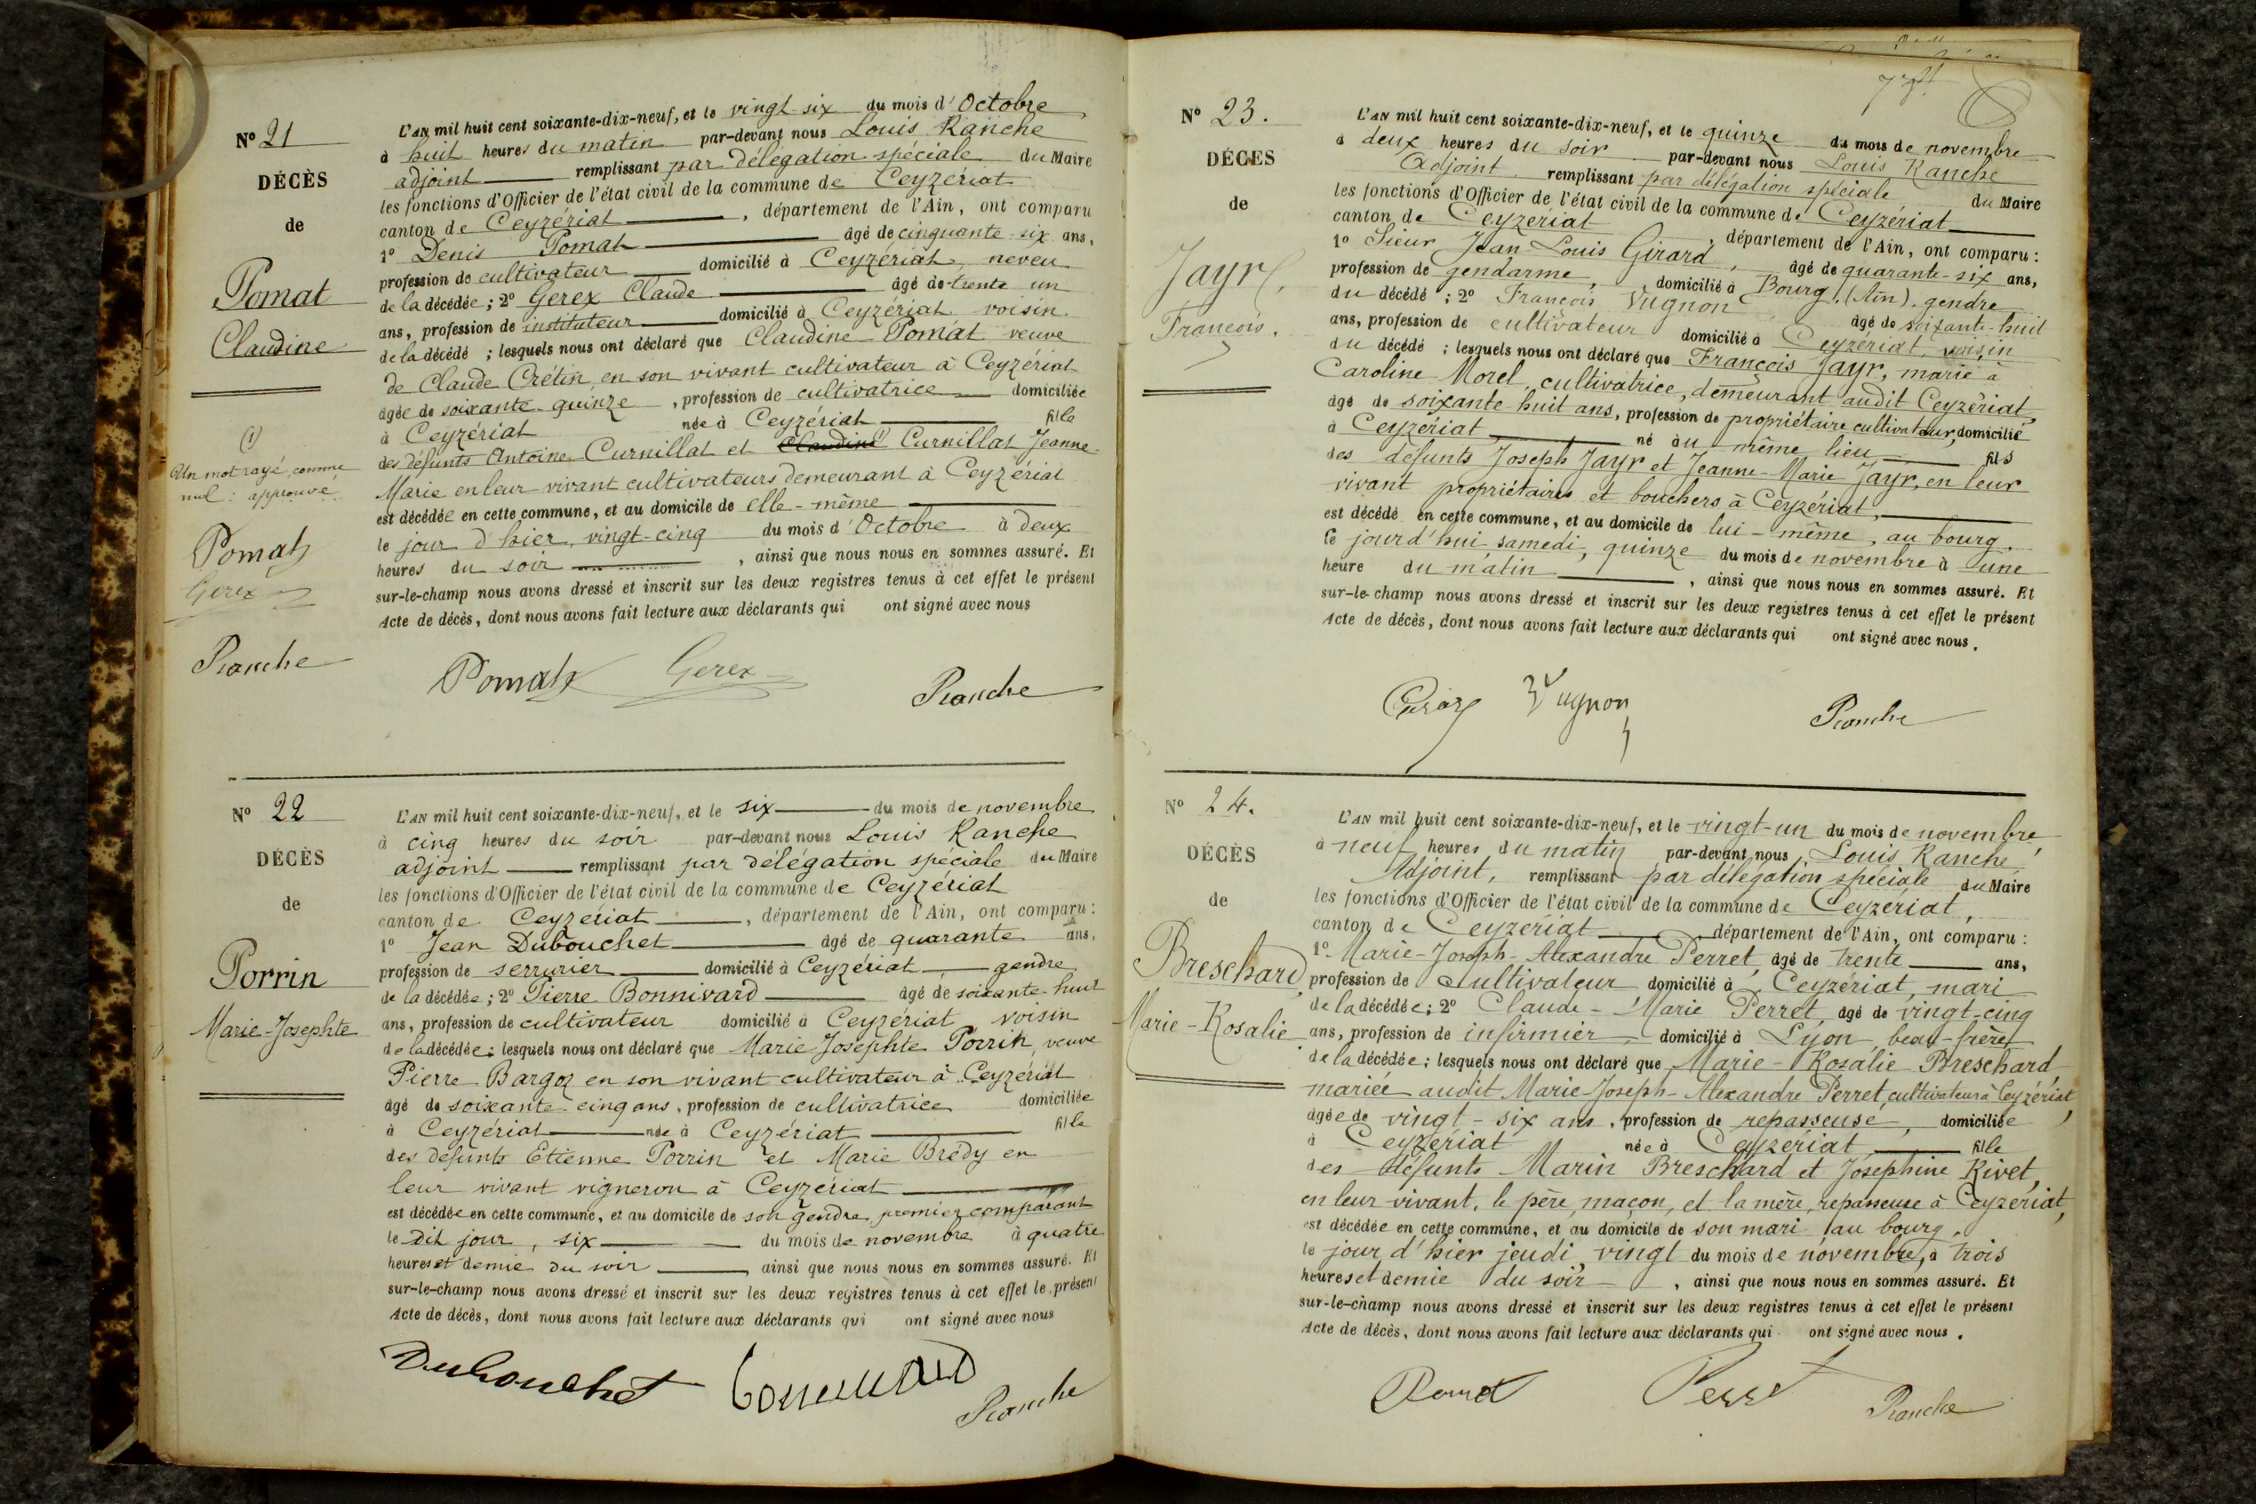 N° 21
DÉCÈS
de
Pomat
Claudine
(1)
Un mot rayé comme
nul : approuvé
Pomat
Gerex
Ranche
L'AN mil huit cent soixante-dix-neuf, et le vingt-six du mois d'Octobre
à huit heures du matin par-devant nous Louis Ranche
adjoint remplissant par délégation spéciale du Maire
les fonctions d'Officier de l'état civil de la commune de Ceyzériat
canton de Ceyzériat , département de l'Ain, ont comparu
1° Denis Pomat âgé de cinquante-six ans,
profession de cultivateur domicilié à Ceyzériat, neveu
de la décédée ; 2° Gerex Claude âgé de trente un
ans, profession de instituteur domicilié à Ceyzériat voisin
de la décédé ; lesquels nous ont déclaré que Claudine Pomat veuve
de Claude Crétin, en son vivant cultivateur à Ceyzériat
âgée de soixante-quinze , profession de cultivatrice domiciliée
à Ceyzériat née à Ceyzériat fille
des défunts Antoine Curnillat et Claudine (1) Curnillat Jeanne
Marie en leur vivant cultivateurs demeurant à Ceyzériat
est décédée en cette commune, et au domicile de elle-même
le jour d'hier, vingt-cinq du mois d'Octobre à deux
heures du soir , ainsi que nous nous en sommes assuré. Et
sur-le-champ nous avons dressé et inscrit sur les deux registres tenus à cet effet le présent
Acte de décès, dont nous avons fait lecture aux déclarants qui ont signé avec nous
Pomat Gerex Ranche
N° 22
DÉCÈS
de
Porrin
Marie-Josephte
L'AN mil huit cent soixante-dix-neuf, et le six du mois de novembre
à cinq heures du soir par-devant nous Louis Ranche
adjoint remplissant par délégation spéciale du Maire
les fonctions d'Officier de l'état civil de la commune de Ceyzériat
canton de Ceyzériat , département de l'Ain, ont comparu :
1° Jean Dubouchet âgé de quarante ans,
profession de serrurier domicilié à Ceyzériat gendre
de la décédée ; 2° Pierre Bonnivard âgé de soixante-huit
ans, profession de cultivateur domicilié à Ceyzériat voisin
de la décédée ; lesquels nous ont déclaré que Marie Josephte Porrin, veuve
Pierre Bargoz en son vivant cultivateur à Ceyzériat
âgé de soixante-cinq ans, profession de cultivatrice domiciliée
à Ceyzériat née à Ceyzériat fille
des défunts Etienne Porrin et Marie Brédy en
leur vivant vigneron à Ceyzériat
est décédée en cette commune, et au domicile de son gendre, premier comparant
le dit jour, six du mois de novembre à quatre
heures et demie du soir , ainsi que nous nous en sommes assuré. Et
sur-le-champ nous avons dressé et inscrit sur les deux registres tenus à cet effet le présent
Acte de décès, dont nous avons fait lecture aux déclarants qui ont signé avec nous
Dubouchet Bonnivard Ranche
N° 23.
DÉCÈS
de
Jayr,
François.
L'AN mil huit cent soixante-dix-neuf, et le quinze du mois de novembre
à deux heures du soir par-devant nous Louis Ranche
Adjoint remplissant par délégation spéciale du Maire
les fonctions d'Officier de l'état civil de la commune de Ceyzériat
canton de Ceyzériat , département de l'Ain, ont comparu :
1° Sieur Jean-Louis Girard, âgé de quarante-six ans,
profession de gendarme, domicilié à Bourg, (Ain), gendre
du décédé ; 2° François Vugnon âgé de soixante-huit
ans, profession de cultivateur domicilié à Ceyzériat, voisin
du décédé ; lesquels nous ont déclaré que François Jayr, marié à
Caroline Morel, cultivatrice, demeurant audit Ceyzériat,
âgé de soixante-huit ans, profession de propriétaire cultivateur, domicilié
à Ceyzériat né au même lieu fils
des défunts Joseph Jayr et Jeanne-Marie Jayr, en leur
vivant propriétaires et bouchers à Ceyzériat,
est décédé en cette commune, et au domicile de lui-même, au bourg.
le jourd'hui samedi, quinze du mois de novembre à une
heure du matin , ainsi que nous nous en sommes assuré. Et
sur-le-champ nous avons dressé et inscrit sur les deux registres tenus à cet effet le présent
Acte de décès, dont nous avons fait lecture aux déclarants qui ont signé avec nous.
Girard Vugnon Ranche
N° 24.
DÉCÈS
de
Breschard
Marie-Rosalie
L'AN mil huit cent soixante-dix-neuf, et le vingt-un du mois de novembre,
à neuf heures du matin par-devant nous, Louis Ranche
Adjoint, remplissant par délégation spéciale du Maire
les fonctions d'Officier de l'état civil de la commune de Ceyzériat,
canton de Ceyzériat , département de l'Ain, ont comparu :
1° Marie-Joseph-Alexandre Perret, âgé de trente ans,
profession de cultivateur domicilié à Ceyzériat, mari
de la décédée ; 2° Claude-Marie Perret, âgé de vingt-cinq
ans, profession de infirmier domicilié à Lyon, beau-frère
de la décédée ; lesquels nous ont déclaré que Marie-Rosalie Breschard
mariée audit Marie-Joseph-Alexandre Perret, cultivateur à Ceyzériat,
âgée de vingt-six ans, profession de repasseuse, domiciliée
à Ceyzériat née à Ceyzériat fille
des défunts Marin Breschard et Joséphine Rivet,
en leur vivant, le père, maçon, et la mère, repasseuse à Ceyzériat,
est décédée en cette commune, et au domicile de son mari au bourg.
le jour d'hier jeudi, vingt du mois de novembre, à trois
heures et demie du soir , ainsi que nous nous en sommes assuré. Et
sur-le-champ nous avons dressé et inscrit sur les deux registres tenus à cet effet le présent
Acte de décès, dont nous avons fait lecture aux déclarants qui ont signé avec nous.
Perret Perret Ranche